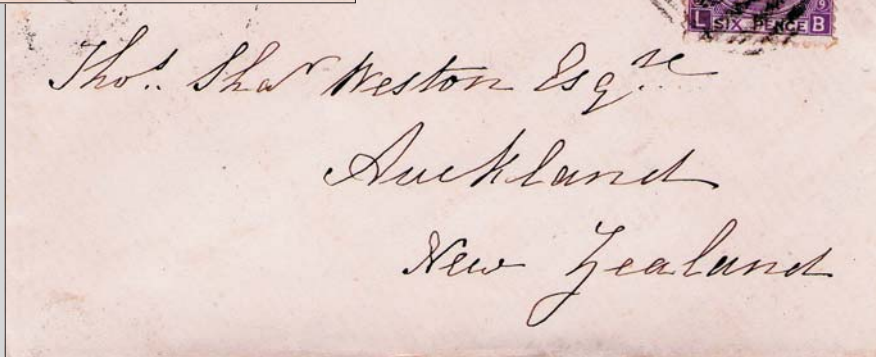 L SIX PENCE B
9
Thos. Shar Weston Esqre.
Auckland
New Zealand